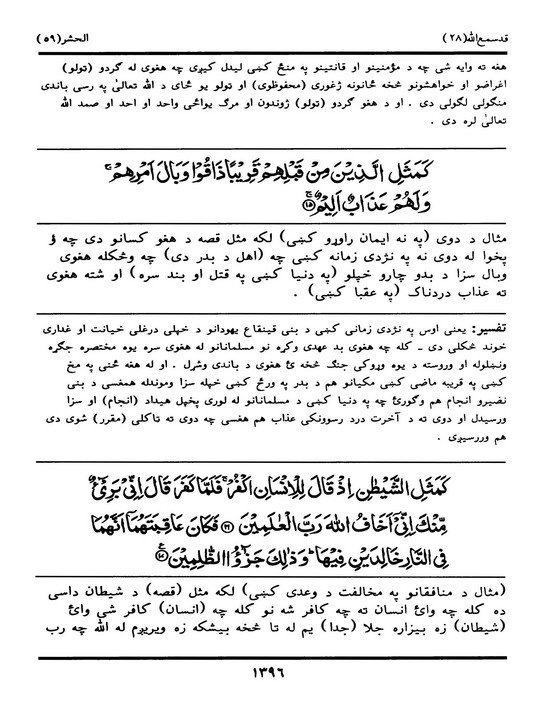 قدسمع الله (۲۸) الحشر (۵۹)
هغه ته وایه شي چه د مؤمنینو او قانتینو په منځ کښي لیدل کیږي چه هغوی له ګردو (ټولو)
اغراضو او خواهشونو څخه ځانونه ژغوري (محفوظوي) او ټولو یو ځای د الله تعالیٰ په رسی باندي
منګولی لګولی دي . او د هغو ګردو (ټولو) ژوندون او مرګ یواځي واحد او احد او صمد الله
تعالیٰ لره دي .
كَمَثَلِ الَّذِيْنَ مِنْ قَبْلِهِمْ قَرِيْبًا ذَاقُوْا وَبَالَ اَمْرِهِمْ ۚ
وَلَهُمْ عَذَابٌ اَلِيْمٌ ۚ ﴿۱۵﴾
مثال د دوی (په نه ایمان راوړو کښي) لکه مثل قصه د هغو کسانو دی چه ؤ
پخوا له دوی نه په نژدی زمانه کښي چه (اهل د بدر دي) چه وڅکله هغوی
وبال سزا د بدو چارو خپلو (په دنیا کښي په قتل او بند سره) او شته هغوی
ته عذاب دردناک (په عقبا کښي) .
تفسیر: یعنی اوس په نژدي زمانی کښي د بنی قینقاع یهودانو د خپلی درغلی خیانت او غداری
خوند څکلی دی ـ کله چه هغوی بد عهدی وکړه نو مسلمانانو له هغوی سره یوه مختصره جګړه
ونښلوله او وروسته د یوه وړوکی جنګ څخه ئ هغوی د باندی وشړل . او له هغه ځنی په مخ
کښي په قریبه ماضی کښي مکیانو هم د بدر په ورځ کښي خپله سزا ومونده همغسی د بنی
نضیرو انجام هم وګورئ چه په دنیا کښي د مسلمانانو له لوری پخپل هیداد (انجام) او سزا
ورسیدل او دوی ته د آخرت درد رسوونکی عذاب هم هغسی چه دوی ته ټاکلی (مقرر) شوی دی
هم وررسیږی .
كَمَثَلِ الشَّيْطٰنِ اِذْ قَالَ لِلْاِنْسَانِ اكْفُرْ ۚ فَلَمَّا كَفَرَ قَالَ اِنِّيْ بَرِيْٓءٌ
مِّنْكَ اِنِّيْٓ اَخَافُ اللهَ رَبَّ الْعٰلَمِيْنَ ﴿۱۶﴾ فَكَانَ عَاقِبَتَهُمَآ اَنَّهُمَا
فِى النَّارِ خَالِدَيْنِ فِيْهَا ؕ وَذٰلِكَ جَزٰٓؤُا الظّٰلِمِيْنَ ﴿۱۷﴾
(مثال د منافقانو په مخالفت د وعدی کښي) لکه مثل (قصه) د شیطان داسی
ده کله چه وائ انسان ته چه کافر شه نو کله چه (انسان) کافر شي وائ
(شیطان) زه بیزاره جلا (جدا) یم له تا څخه بیشکه زه ویریږم له الله چه رب
۱۳۹۶